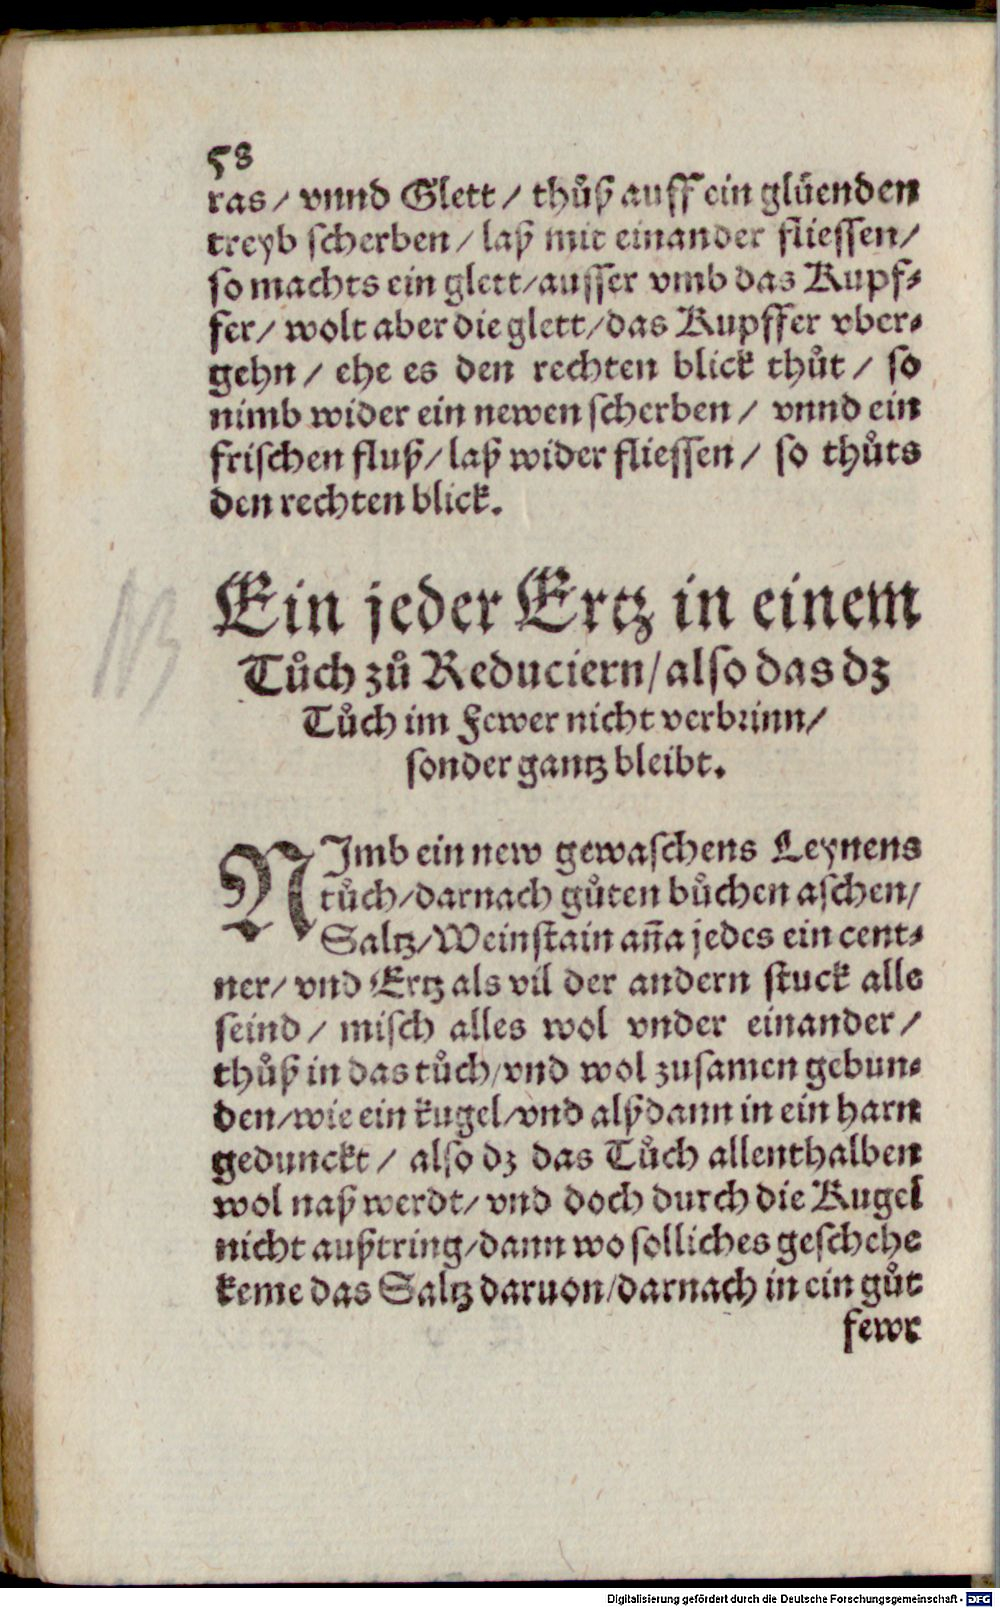 58
ras / vnnd Glett / thůß auff ein glüenden
treyb scherben / laß mit einander fliessen /
so machts ein glett / ausser vmb das Kupf-
fer / wolt aber die glett / das Kupffer vber-
gehn / ehe es den rechten blick thůt / so
nimb wider ein newen scherben / vnnd ein
frischen fluß / laß wider fliessen / so thůts
den rechten blick.
Ein jeder Ertz in einem
Tůch zů Reduciern / also das dz
Tůch im Fewer nicht verbrinn /
sonder gantz bleibt.
NB
NImb ein new gewaschens Leynens
tůch / darnach gůten bůchen aschen /
Saltz / Weinstain aña jedes ein cent-
ner / vnd Ertz als vil der andern stuck alle
seind / misch alles wol vnder einander /
thůß in das tůch / vnd wol zusamen gebun-
den / wie ein kugel / vnd alßdann in ein harn
gedunckt / also dz das Tůch allenthalben
wol naß werdt / vnd doch durch die Kugel
nicht außtring / dann wo solliches geschehe
keme das Saltz daruon / darnach in ein gůt
fewr
Digitalisierung gefördert durch die Deutsche Forschungsgemeinschaft - DFG